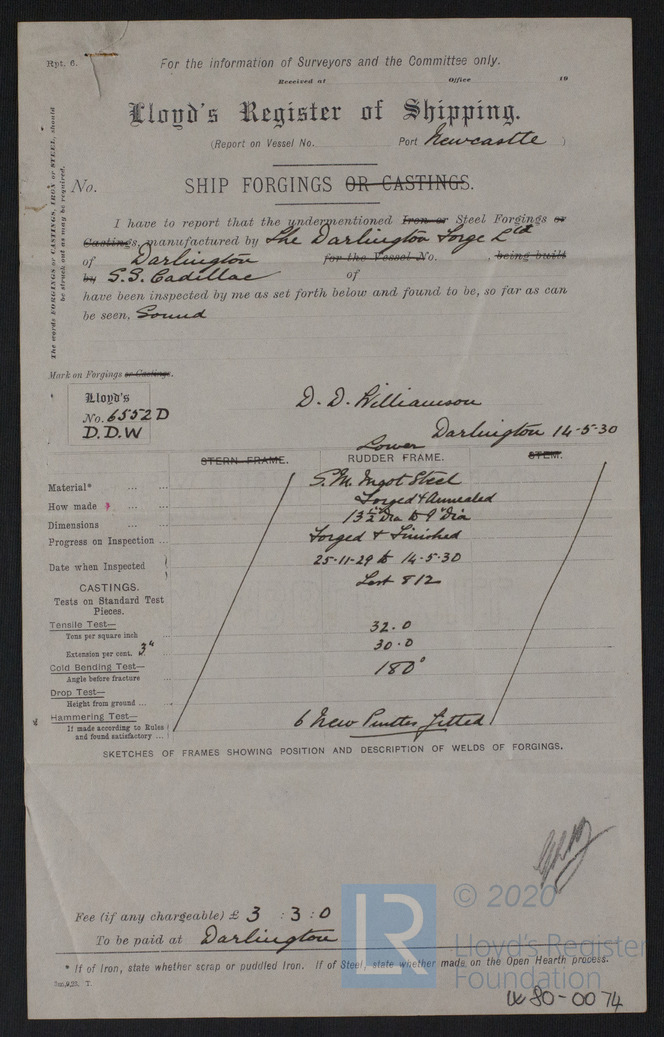 Rpt. 6.
For the information of Surveyors and the Committee only.
Received at Office 19
Lloyd's Register of Shipping.
(Report on Vessel No. Port Newcastle )
No.
SHIP FORGINGS OR CASTINGS.
The words FORGINGS or CASTINGS, IRON or STEEL, should
be struck out as may be required.
I have to report that the undermentioned Iron or Steel Forgings or
Castings, manufactured by The Darlington Forge Ltd
of Darlington for the Vessel No. , being built
by S.S. Cadillac of
have been inspected by me as set forth below and found to be, so far as can
be seen, Sound
Mark on Forgings or Castings.
Lloyd's
No. 6552 D
D.D.W
D. D. Williamson
Darlington 14-5-30
Lower
STERN FRAME. RUDDER FRAME. STEM.
Material* S.M. Ingot Steel
How made Forged & Annealed
Dimensions 13½" Dia to 9" Dia
Progress on Inspection Forged & Finished
Date when Inspected 25-11-29 to 14-5-30
CASTINGS.
Tests on Standard Test
Pieces.
Tensile Test—
Tons per square inch 32.0
Extension per cent. 3" 30.0
Cold Bending Test—
Angle before fracture 180°
Drop Test—
Height from ground
Hammering Test—
If made according to Rules
and found satisfactory
6 New Pintles fitted
SKETCHES OF FRAMES SHOWING POSITION AND DESCRIPTION OF WELDS OF FORGINGS.
Fee (if any chargeable) £ 3 : 3 : 0
To be paid at Darlington
* If of Iron, state whether scrap or puddled Iron. If of Steel, state whether made on the Open Hearth process.
LR
© 2020
Lloyd's Register
Foundation